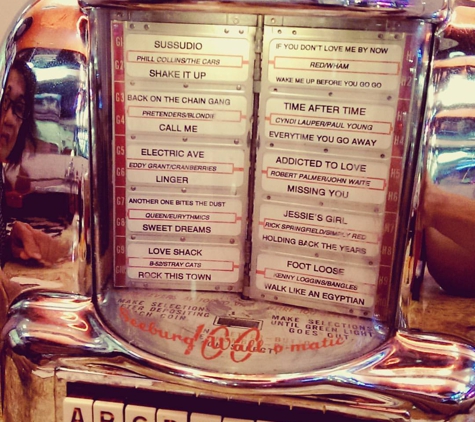 G1
SUSSUDIO
G2
PHILL COLLINS/THE CARS
SHAKE IT UP
G3
BACK ON THE CHAIN GANG
G4
PRETENDERS/BLONDIE
CALL ME
G5
ELECTRIC AVE
G6
EDDY GRANT/CRANBERRIES
LINGER
G7
ANOTHER ONE BITES THE DUST
G8
QUEEN/EURYTHMICS
SWEET DREAMS
G9
LOVE SHACK
B-52/STRAY CATS
ROCK THIS TOWN
IF YOU DON'T LOVE ME BY NOW
RED/WHAM
WAKE ME UP BEFORE YOU GO GO
TIME AFTER TIME
CYNDI LAUPER/PAUL YOUNG
EVERYTIME YOU GO AWAY
ADDICTED TO LOVE
ROBERT PALMER/JOHN WAITE
MISSING YOU
JESSIE'S GIRL
RICK SPRINGFIELD/SIMPLY RED
HOLDING BACK THE YEARS
FOOT LOOSE
KENNY LOGGINS/BANGLES
WALK LIKE AN EGYPTIAN
MAKE SELECTIONS
AFTER DEPOSITING
EACH COIN
MAKE SELECTIONS
UNTIL GREEN LIGHT
GOES OUT
Seeburg Wall-o-matic
100
A B C D